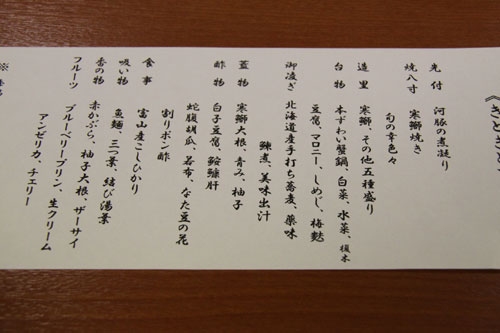 《きときと
先付　河豚の煮凝り
焼八寸　寒鰤焼き
旬の幸色々
造里　寒鰤、その他五種盛り
台物　本ずわい蟹鍋、白菜、水菜、榎木
豆腐、マロニー、しめじ、梅麩
御凌ぎ　北海道産手打ち蕎麦、薬味
鰊煮、美味出汁
蓋物　寒鰤大根、青み、柚子
酢物　白子豆腐、鮟鱇肝
蛇腹胡瓜、若布、なた豆の花
割りポン酢
食事　富山産こしひかり
吸い物　魚麺、三つ葉、結び湯葉
香の物　赤かぶら、柚子大根、ザーサイ
フルーツ　ブルーベリープリン、生クリーム
アンゼリカ、チェリー
※